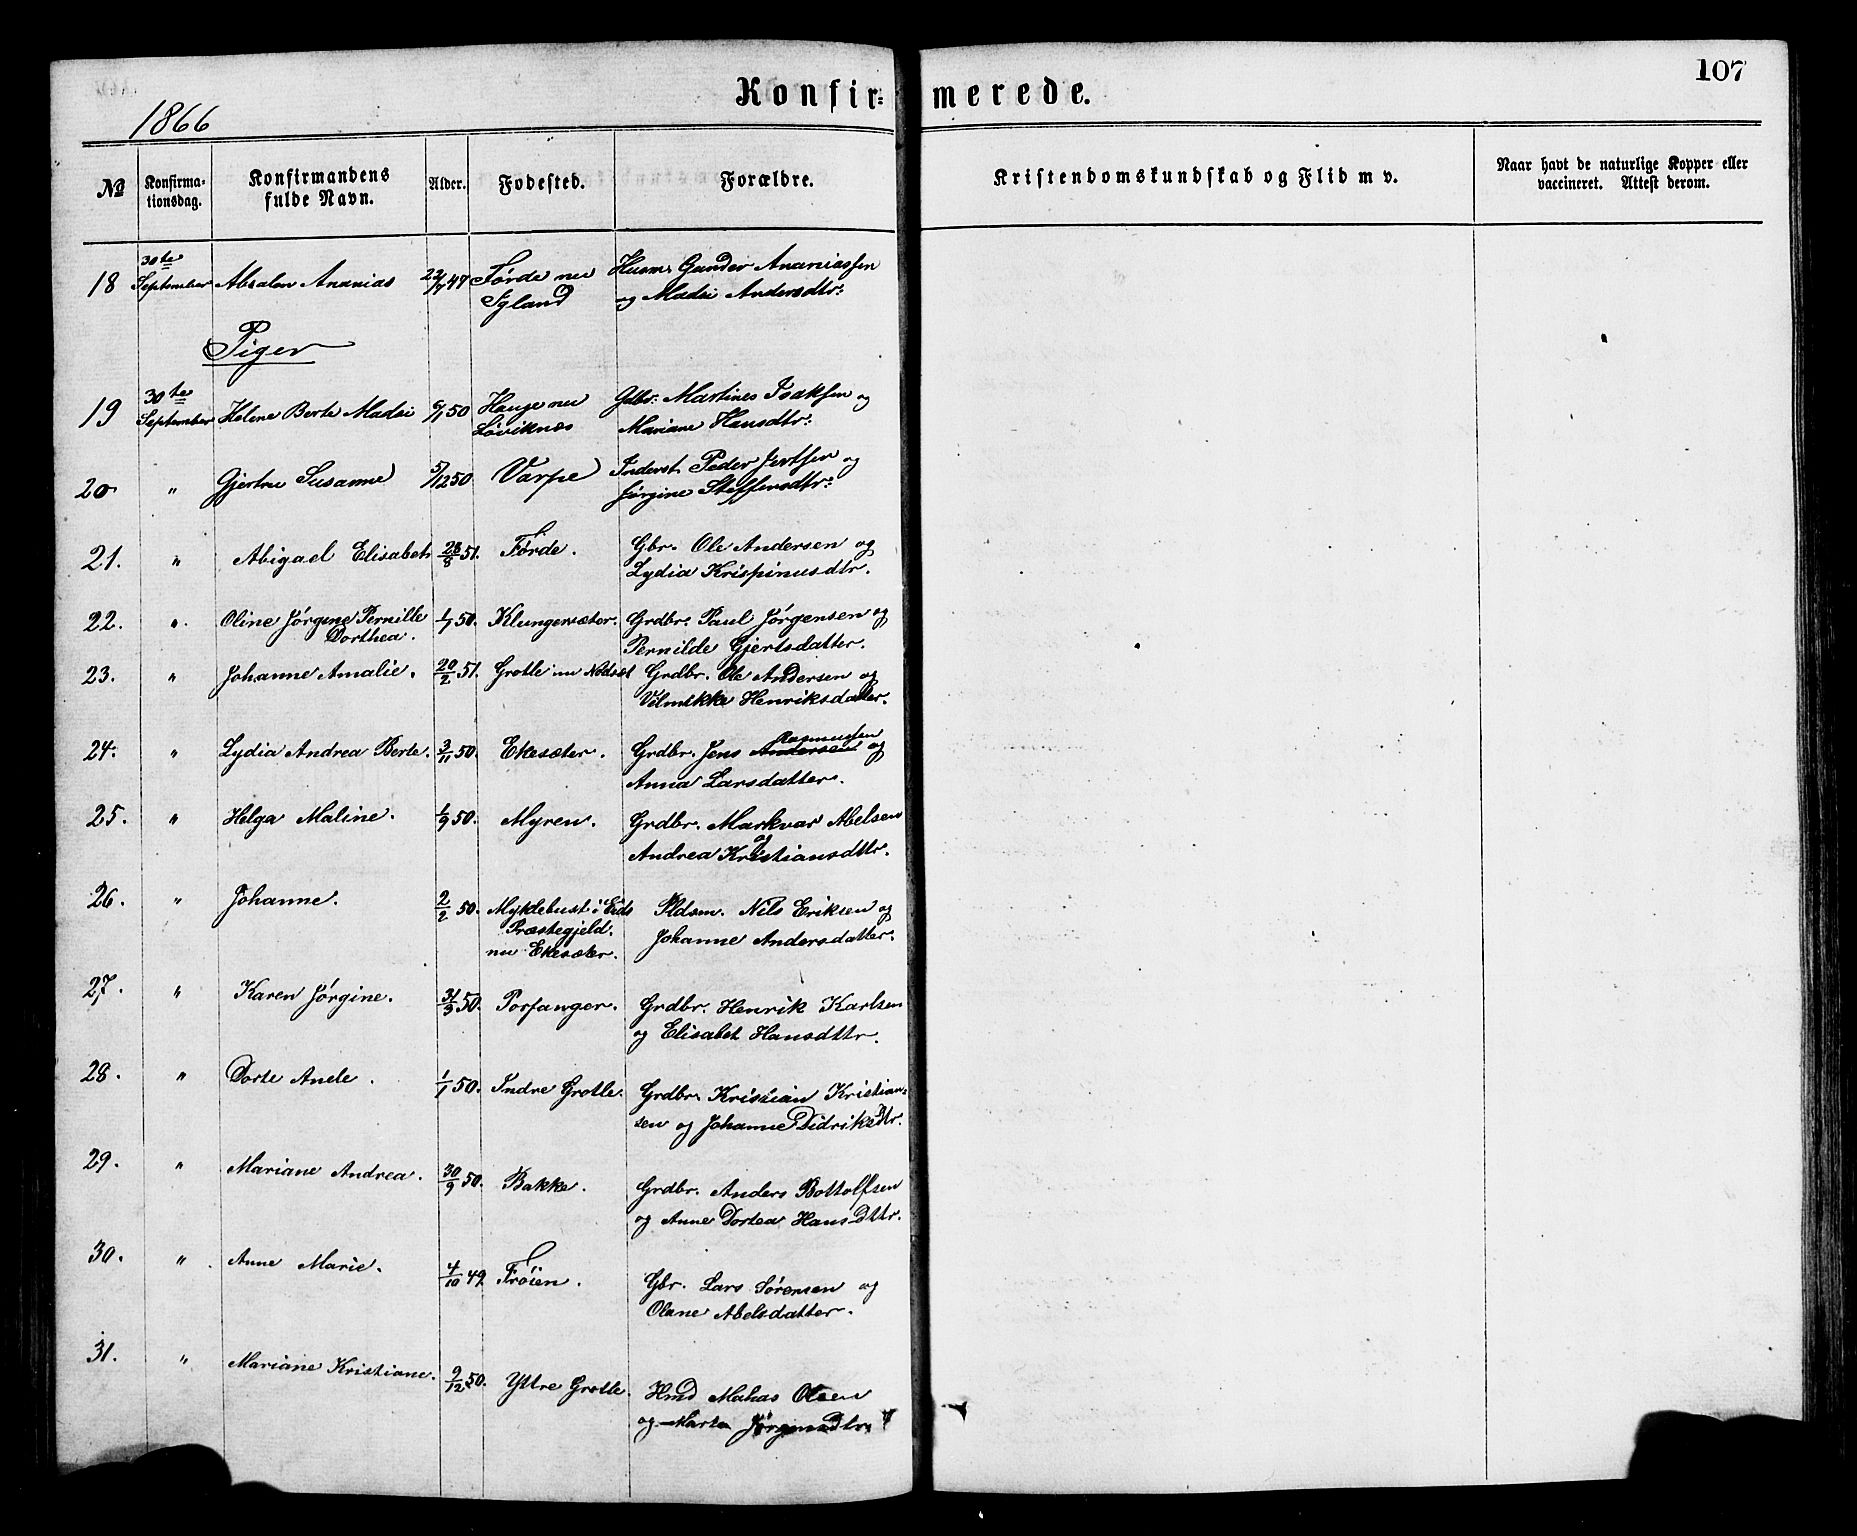 Konfir= merede.
107
1866
№ Konfirma- Konfirmandens Alder. Fødested. Forældre. Kristendomskundskab og Flid m v. Naar havt de naturlige Kopper eller
tionsdag. fulde Navn. vaccineret. Attest derom.
30te
18 September Absalon Ananias 22/7 49 Førde nu Husm. Gunder Ananiassen
Igland og Madsi Andersdtr:
Piger
30te
19 September Helene Berte Madsi 6/1 50 Hauge nu Gdbr: Martines Isaksen og
Løviknæs Mariane Hansdtr:
20 " Gjertru Susanne 5/12 50 Varpe Inderst. Peder Jertsen og
Jørgine Steffensdtr:
21. " Abigael Elisabeth 28/8 51. Førde. Gbr. Ole Andersen og
Lydia Krispinusdtr.
22. " Oline Jørgine Pernille 1/7 50. Klungesæter. Grdbr. Paul Jørgensen og
Dorthea. Pernilde Gjertsdatter.
23. " Johanne Amalie. 20/2 51. Grotle nu Nødset Grdbr. Ole Andersen og
Velmikke Henriksdatter.
Rasmussen
24. " Lydia Andrea Berte. 3/11 50. Ekesæter. Grdbr. Jens Andersen og
Anna Larsdatter.
25. " Helga Maline. 1/9 50. Myren. Grdbr. Markvar Abelsen
og
Andrea Kristiansdttr.
26. " Johanne. 2/2 50. Myklebust i Eids Pldsm. Nils Eriksen og
Præstegjeld. Johanne Andersdatter.
nu Ekesæter.
27. " Karen Jørgine. 31/3 50. Porfanger. Grdbr. Henrik Karlsen
og Elisabet Hansdttr.
28. " Dorte Anele. 1/1 50. Indre Grotle. Grdbr. Kristian Kristian=
sen og Johanne Didriksdtr.
29. " Mariane Andrea. 30/9 50. Bakke. Grdbr. Anders Bottolfsen
og Anne Dortea Hans Dttr.
30. " Anne Marie. 4/10 49 Frøien. Gbr. Lars Sørensen og
Olane Abelsdatter.
31. " Mariane Kristiane. 9/12 50. Yttre Grotle. Hmd Mathias Olsen
og Marta Jørgensdtr.